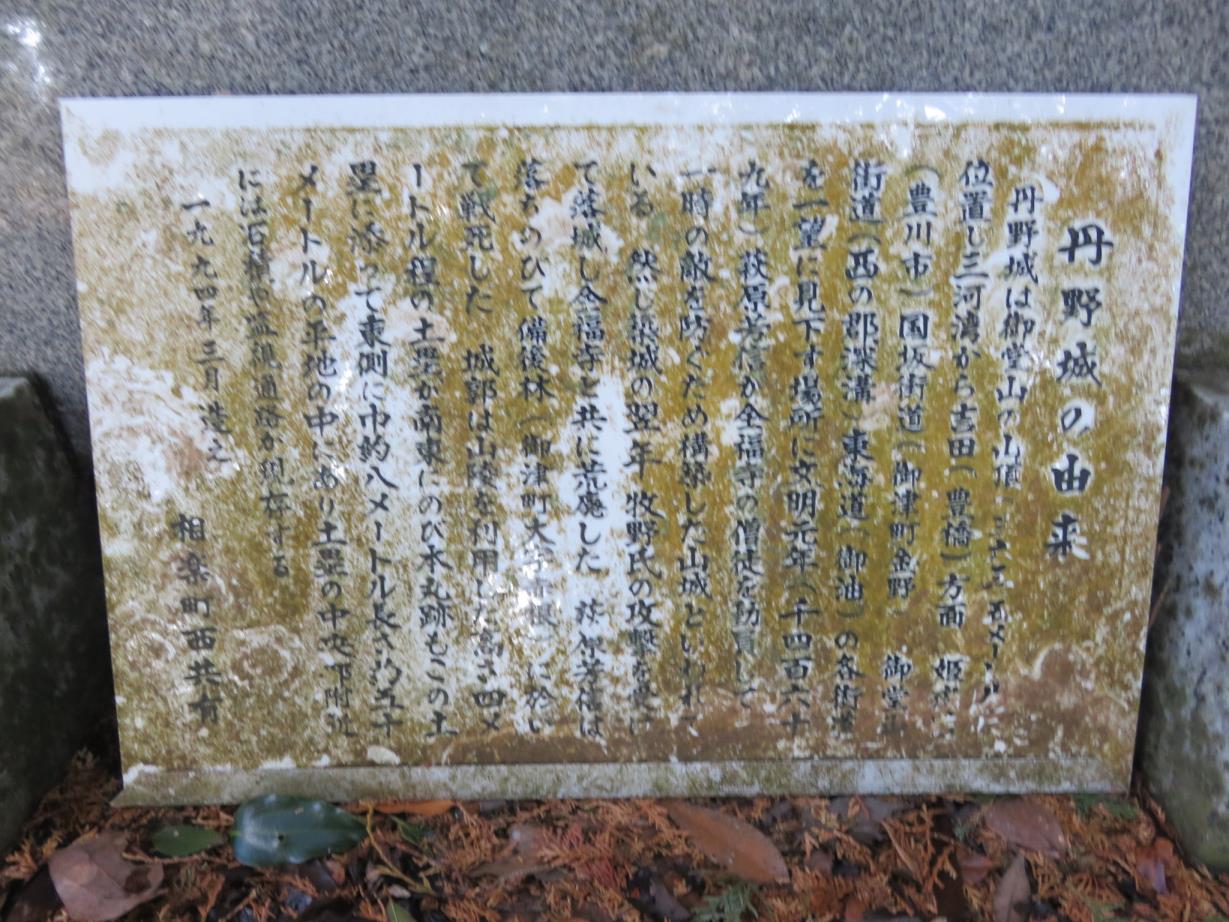 丹野城の由来
丹野城は御堂山の山頂
位置し三河湾から吉田（豊橋）方面　姫街道
（豊川市）国坂街道（御津町金野　御堂山
街道（西の郡深溝）東海道（御油）の各街道
を一望に見下す場所に文明元年（千四百六十
九年）萩原芳信が全福寺の僧徒を防員して
一時の敵を防ぐため構築した山城といわれて
いる　然し築城の翌年　牧野氏の攻撃を受け
て落城し全福寺と共に荒廃した　萩原芳信は
落ちのびて備後林（御津町大字　に於い
て戦死した　城郭は山陵を利用した高さ四メ
ートル程の土塁が南東にのび本丸跡もこの土
塁に添って東側に巾約八メートル長さ約五十
メートルの平地の中にあり土塁の中央下附近
には石積や監視通路が現存する
一九九四年三月　造之
相楽町西共有